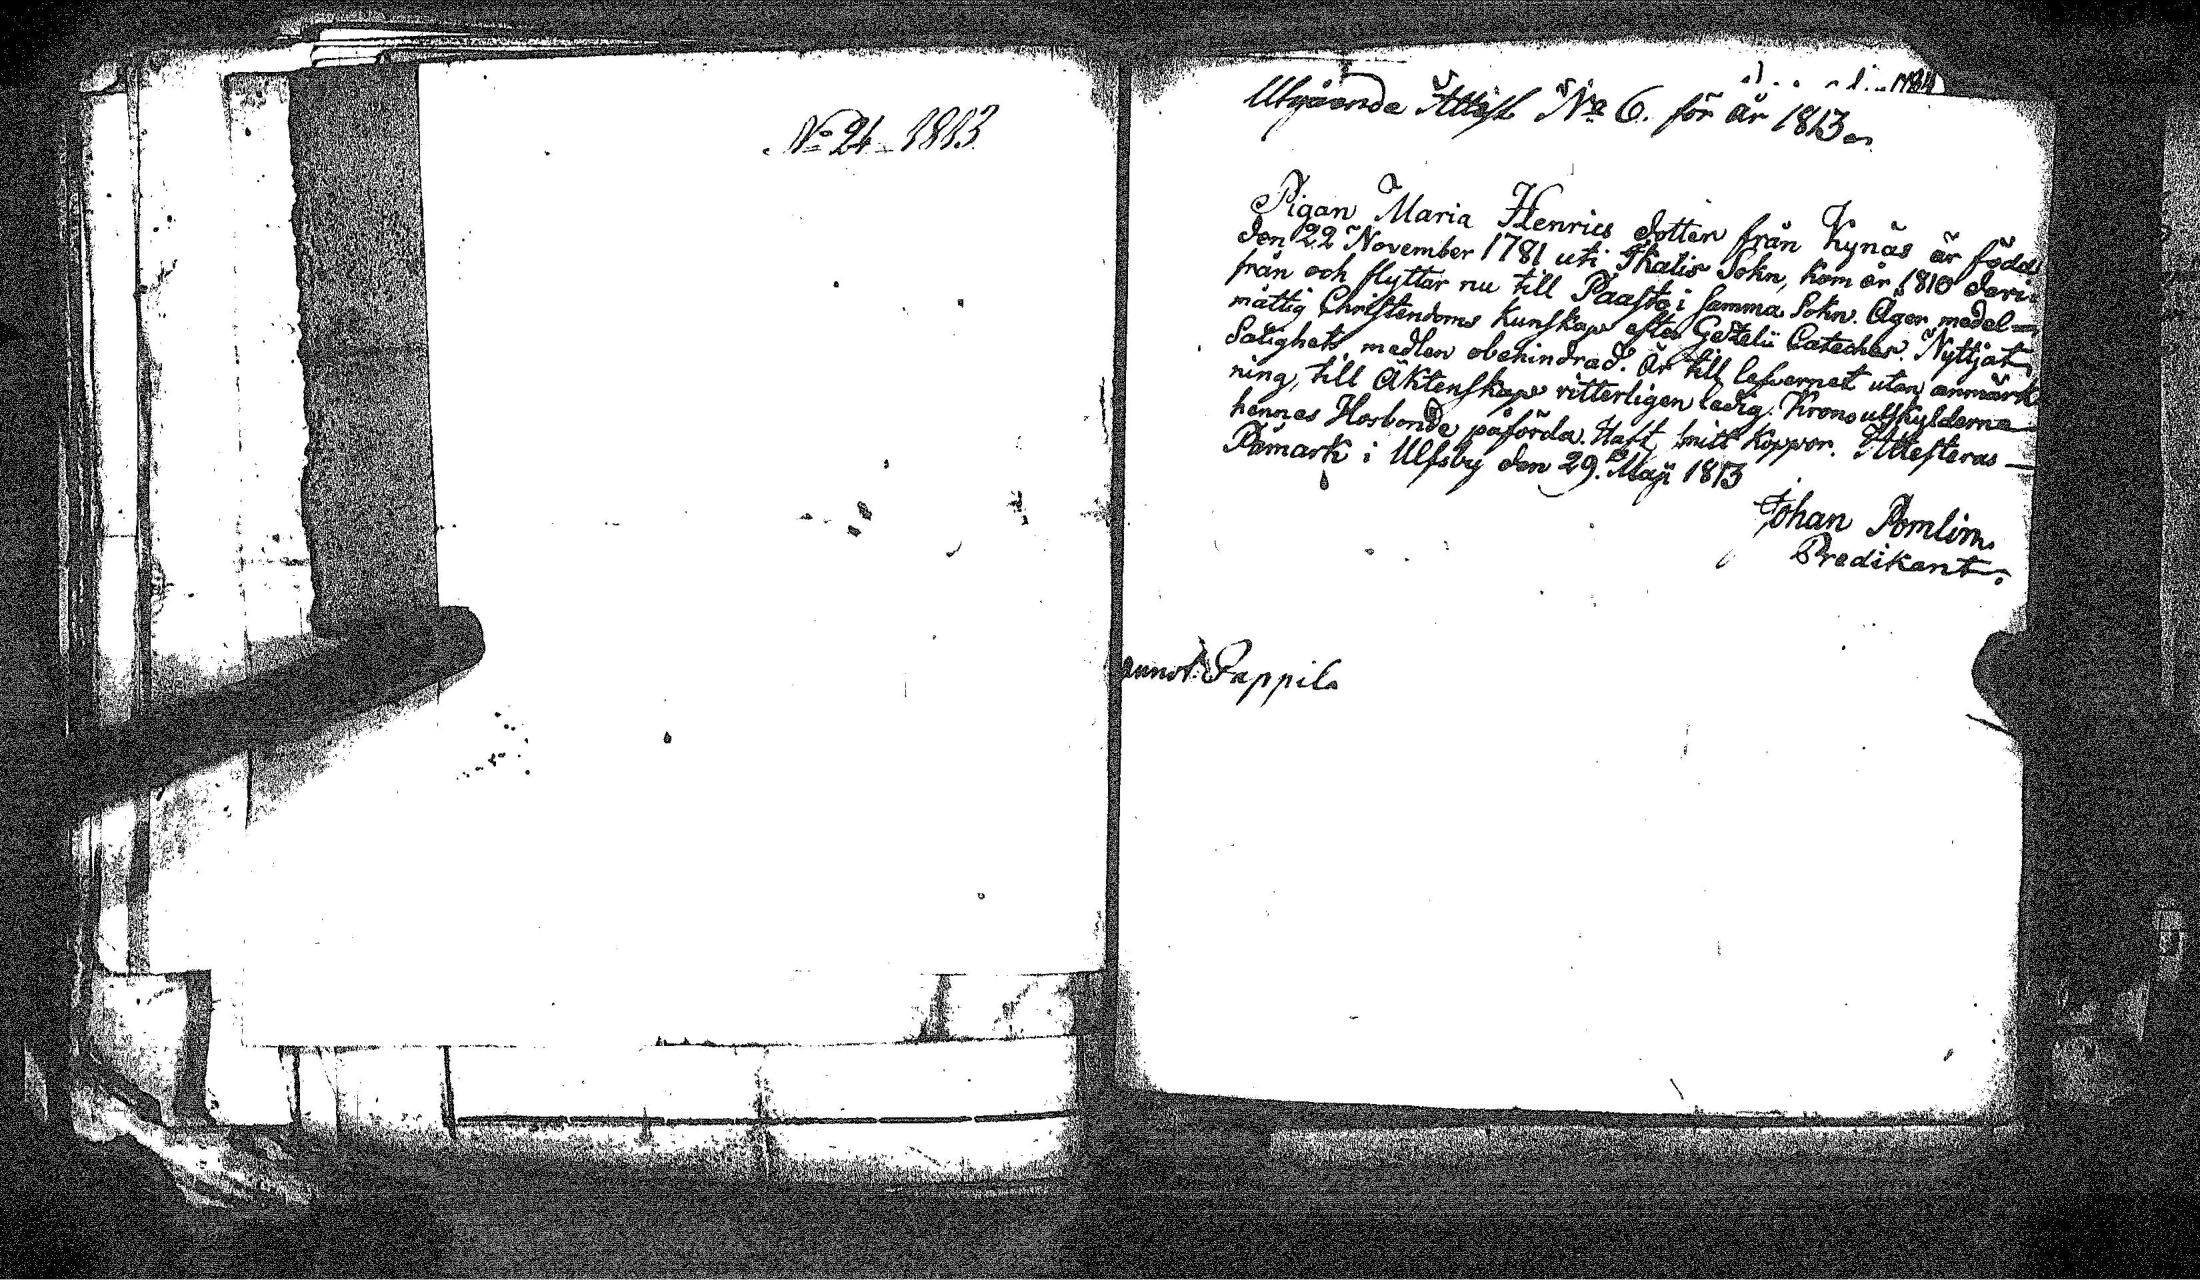 No 24 1813
Utgående Attest No 6. för år 1813.
Pigan Maria Henrics dotter från Kynäs är född
den 22 November 1781 uti Ikalis Sokn, kom år 1810 deri-
från och flyttar nu till Paasto i samma Sokn. Äger medel-
måttig Christendoms Kunskap efter Gezelii Cateches. Nyttjat
Salighets medlen obehindrad. Är till lefvernet utan anmärk-
ning, till Äktenskap ritterligen ledig. Krono utskylderna
hennes Hosbonde påförda. Haft smitt Koppor. Attesteras
Påmark i Ulfsby den 29. Maji 1813
Johan Pomlin
Predikant.
Pappila